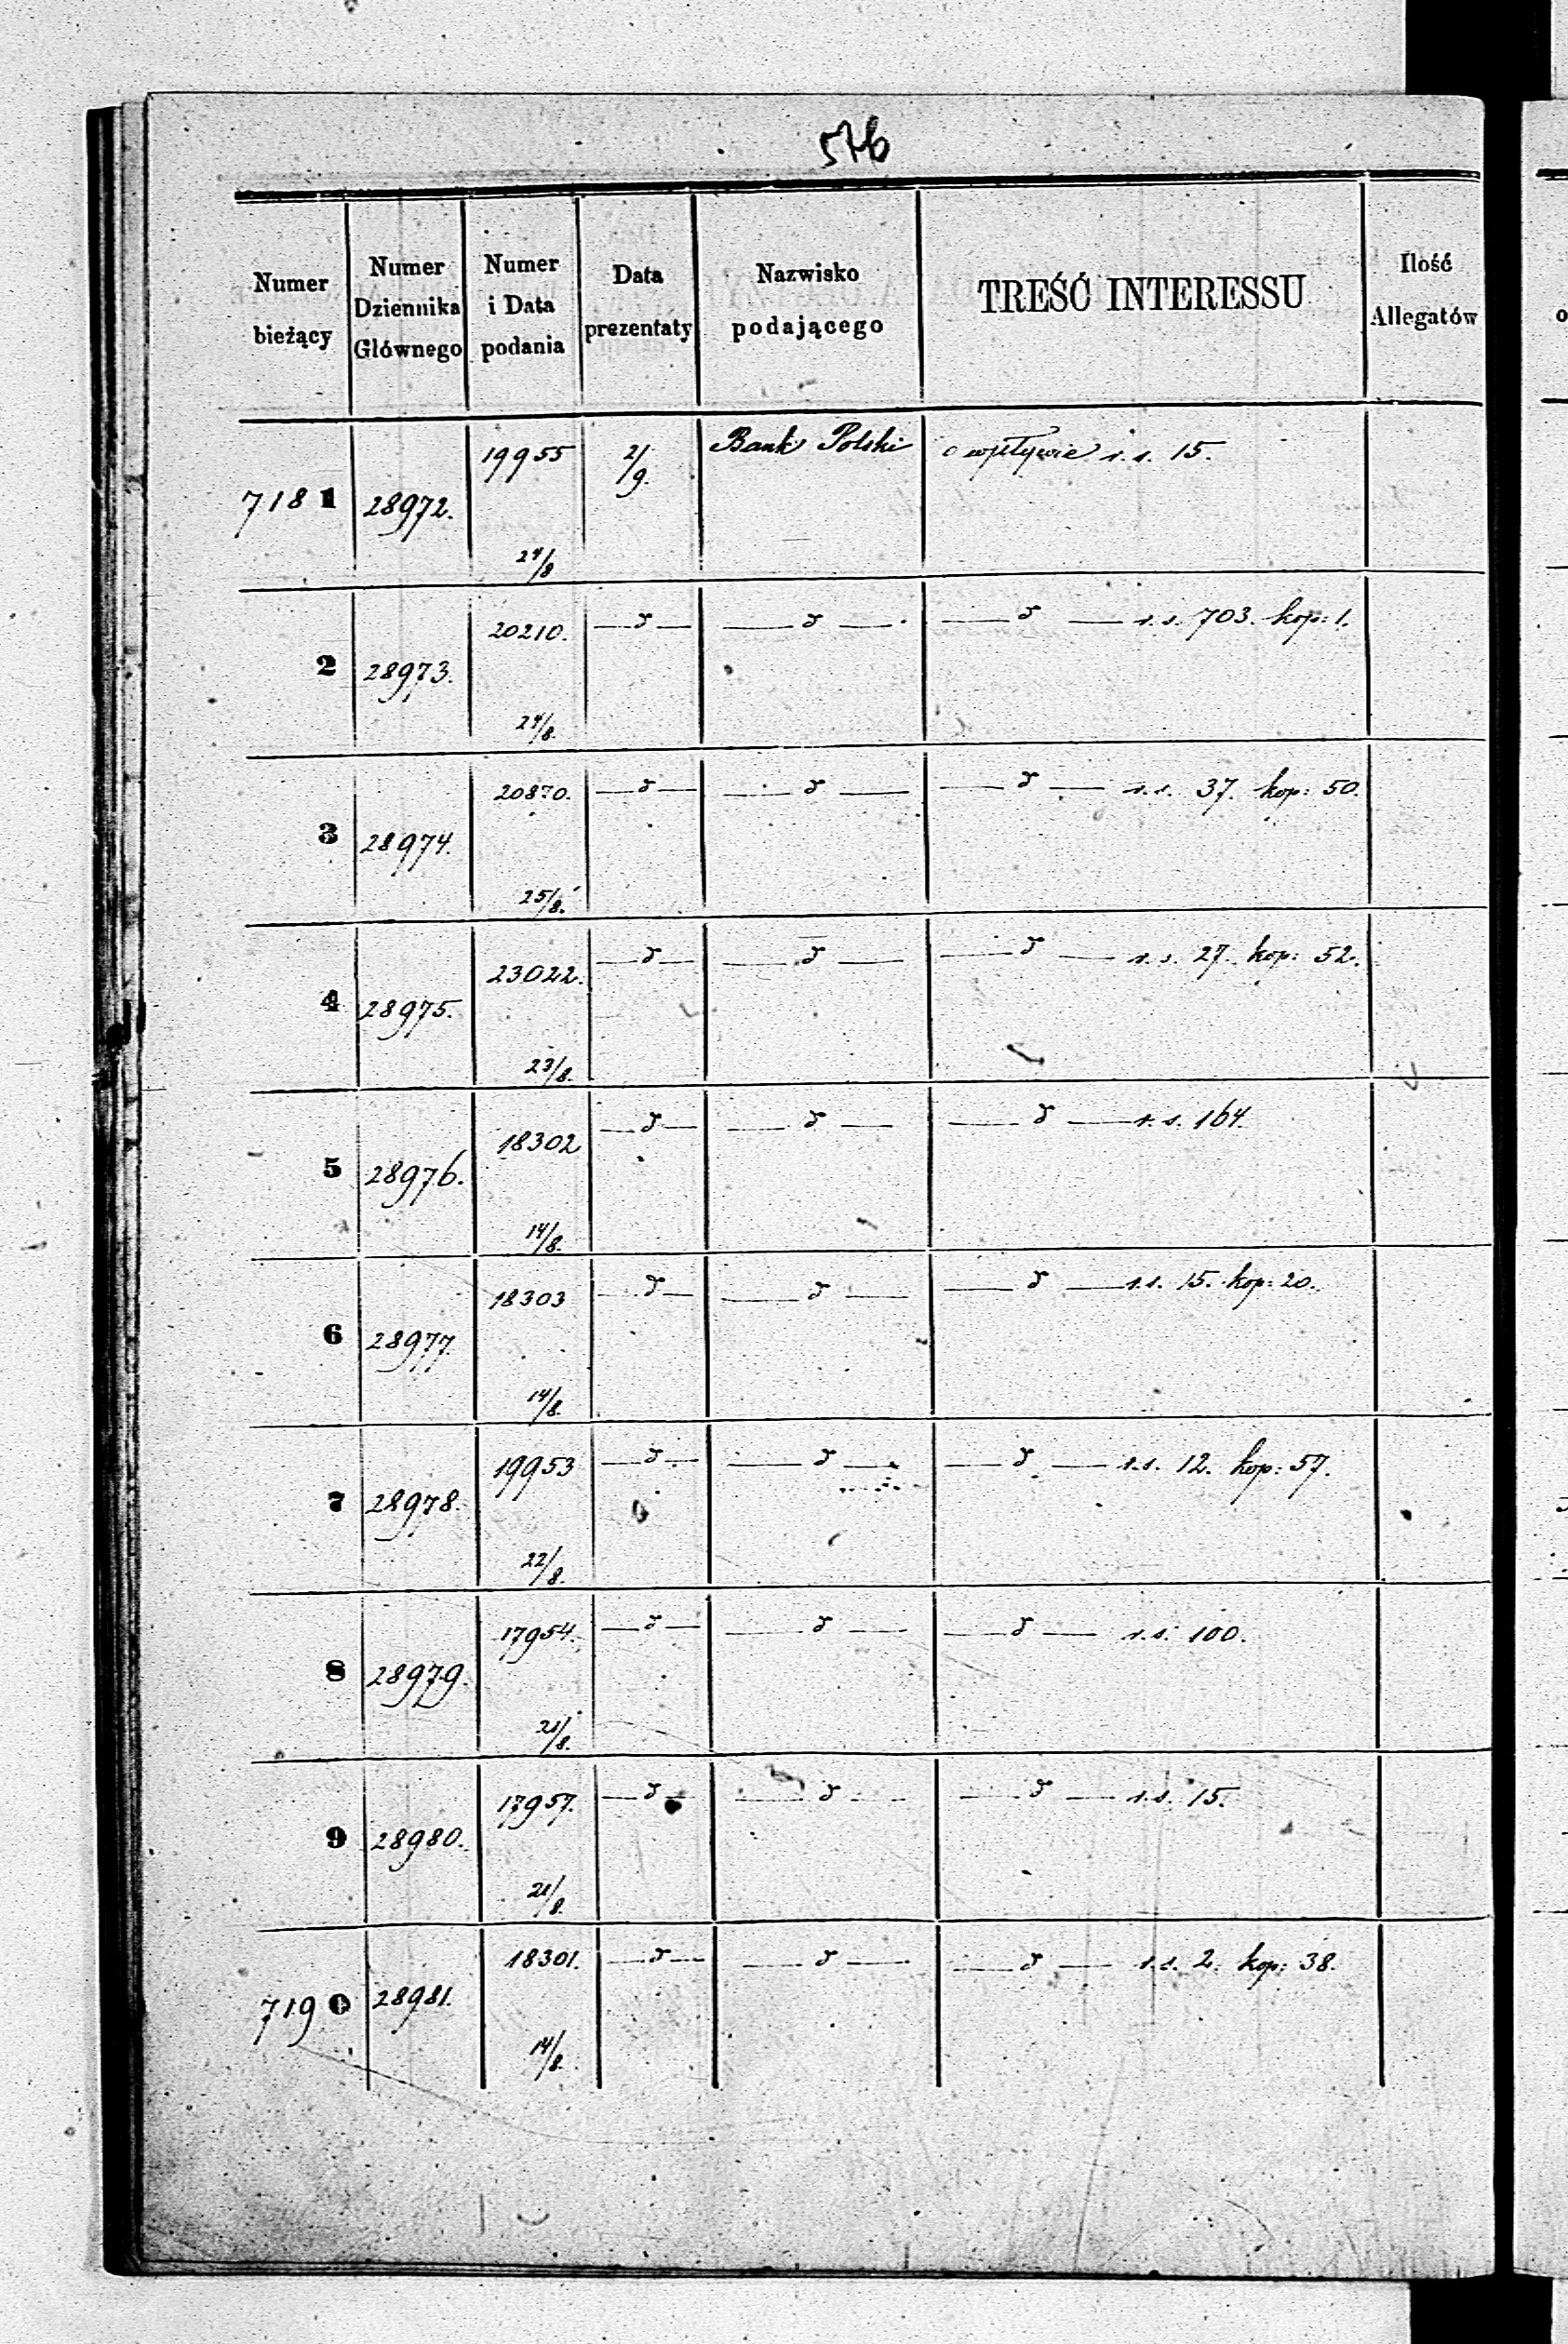 576
Numer bieżący | Numer Dziennika Głównego | Numer i Data podania | Data prezentaty | Nazwisko podającego | TREŚĆ INTERESSU | Ilość Allegatów
7181 | 28972. | 19955 24/8 | 2/9. | Bank Polski | o wpływie r. s. 15.
2 | 28973. | 20210. 24/8. | —d— | —d— | —d— r. s. 703. kop: 1.
3 | 28974. | 20870. 25/8. | —d— | —d— | —d— r. s. 37. kop: 50.
4 | 28975. | 23022. 23/8. | —d— | —d— | —d— r. s. 27. kop: 52.
5 | 28976. | 18302 14/8. | —d— | —d— | —d— r. s. 164.
6 | 28977. | 18303 14/8. | —d— | —d— | —d— r. s. 15. kop: 20.
7 | 28978. | 19953 22/8. | —d— | —d— | —d— r. s. 12. kop: 57.
8 | 28979. | 17954. 21/8. | —d— | —d— | —d— r. s. 100.
9 | 28980. | 17957. 21/8. | —d— | —d— | —d— r. s. 15.
7190 | 28981. | 18301. 14/8. | —d— | —d— | —d— r. s. 2. kop: 38.